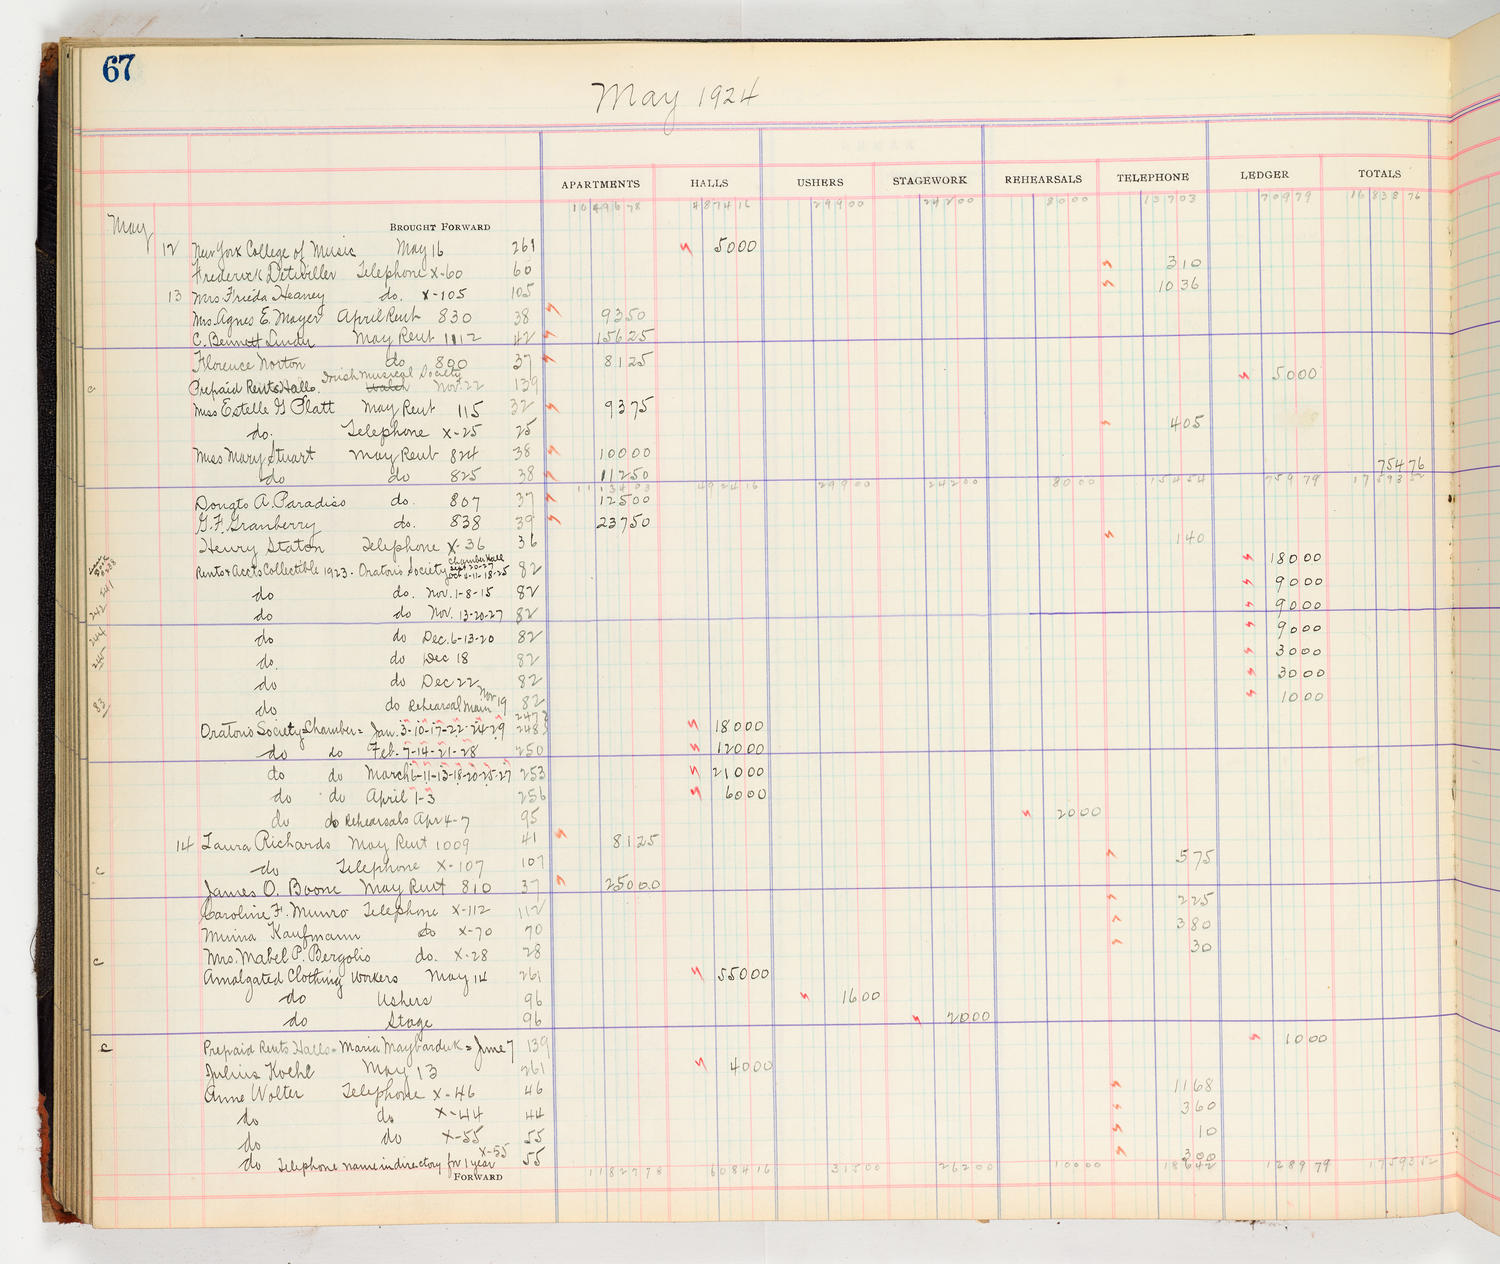 67
May 1924
APARTMENTS HALLS USHERS STAGEWORK REHEARSALS TELEPHONE LEDGER TOTALS
May BROUGHT FORWARD 1049678 487416 29900 24200 8000 13703 70979 1683876
12 New York College of Music May 16 261 5000
Frederick Detwiller Telephone X-60 60 310
13 Mrs Frieda Heaney do. X-105 105 1036
Mrs. Agnes E. Mayer April Rent 830 38 9350
C. Bennett Linder May Rent 1112 42 15625
Florence Norton do 800 37 8125
c Prepaid Rents Halls. Irish Musical Society Nov. 22 139 5000
Miss Estelle G Platt May Rent 115 32 9375
do. Telephone X-25 25 405
Miss Mary Stuart May Rent 824 38 10000
do do 825 38 11250 75476
1113403 492416 29900 24200 8000 15454 75979 1759352
A. Paradiso do. 807 37 12500
G.F. Granberry do. 838 39 23750
Henry Staton Telephone X-36 36 140
Rents & Accts Collectible 1923. Oratorio Society Chamber Hall Oct 4-11-18-25 82 18000
241 do do. Nov. 1-8-15 82 9000
242 do do Nov. 13-20-27 82 9000
244 do do Dec. 6-13-20 82 9000
245 do. do Dec 18 82 3000
do do Dec 22 82 3000
83 do do Rehearsal Main Nov 19 82 1000
Oratorio Society=Chamber= Jan. 3-10-17-22-24-29 247 248 18000
do do Feb. 7-14-21-28 250 12000
do do March 6-11-13-18-20-25-27 253 21000
do do April 1-3 256 6000
do do Rehearsals Apr 4-7 95 2000
14 Laura Richards May Rent 1009 41 8125
c do Telephone X-107 107 575
James O. Boone May Rent 810 37 25000
Caroline F. Munro Telephone X-112 112 225
Minna Kaufmann do X-70 70 380
c Mrs. Mabel P. Bergolio do. X-28 28 30
Amalgated Clothing Workers May 14 261 55000
do Ushers 96 1600
do Stage 96 2000
c Prepaid Rents Halls= Maria Maybarduk = June 7 139 1000
Julius Koehl May 13 261 4000
Anne Wolter Telephone X-46 46 1168
do do X-44 44 360
do do X-55 55 10
do Telephone name in directory for 1 year X-55 55 300
FORWARD 1182778 608416 31500 26200 10000 18642 128979 1759352